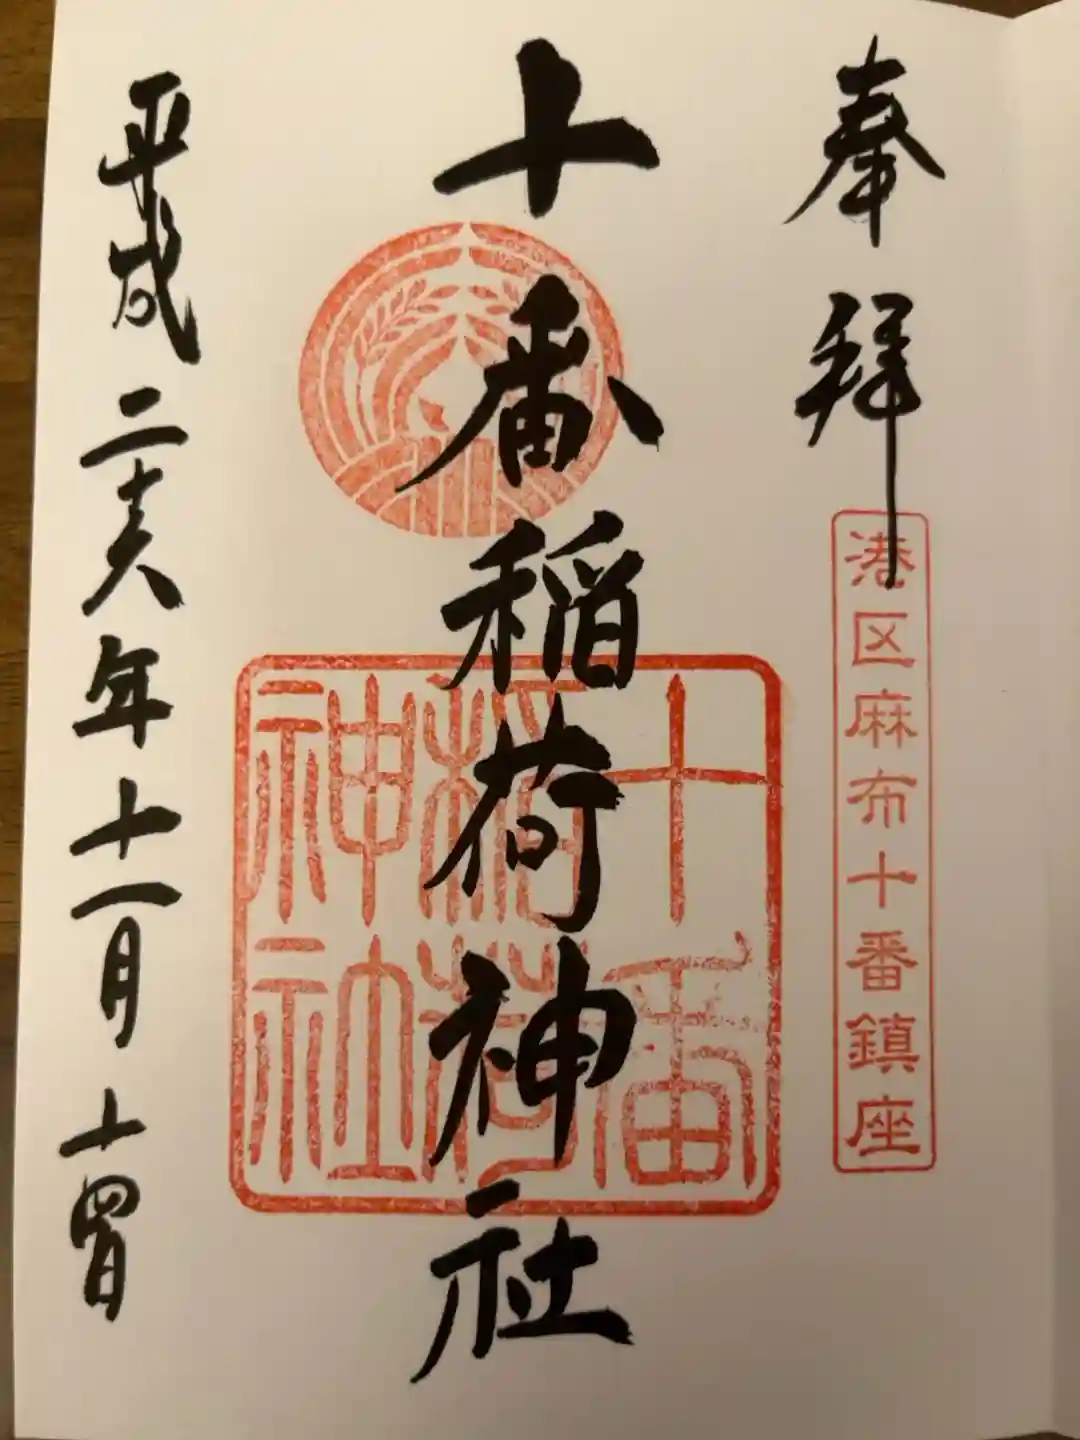 奉拝
港区麻布十番鎮座
十番稲荷神社
十番
稲荷
神社
平成二十六年十一月十四日